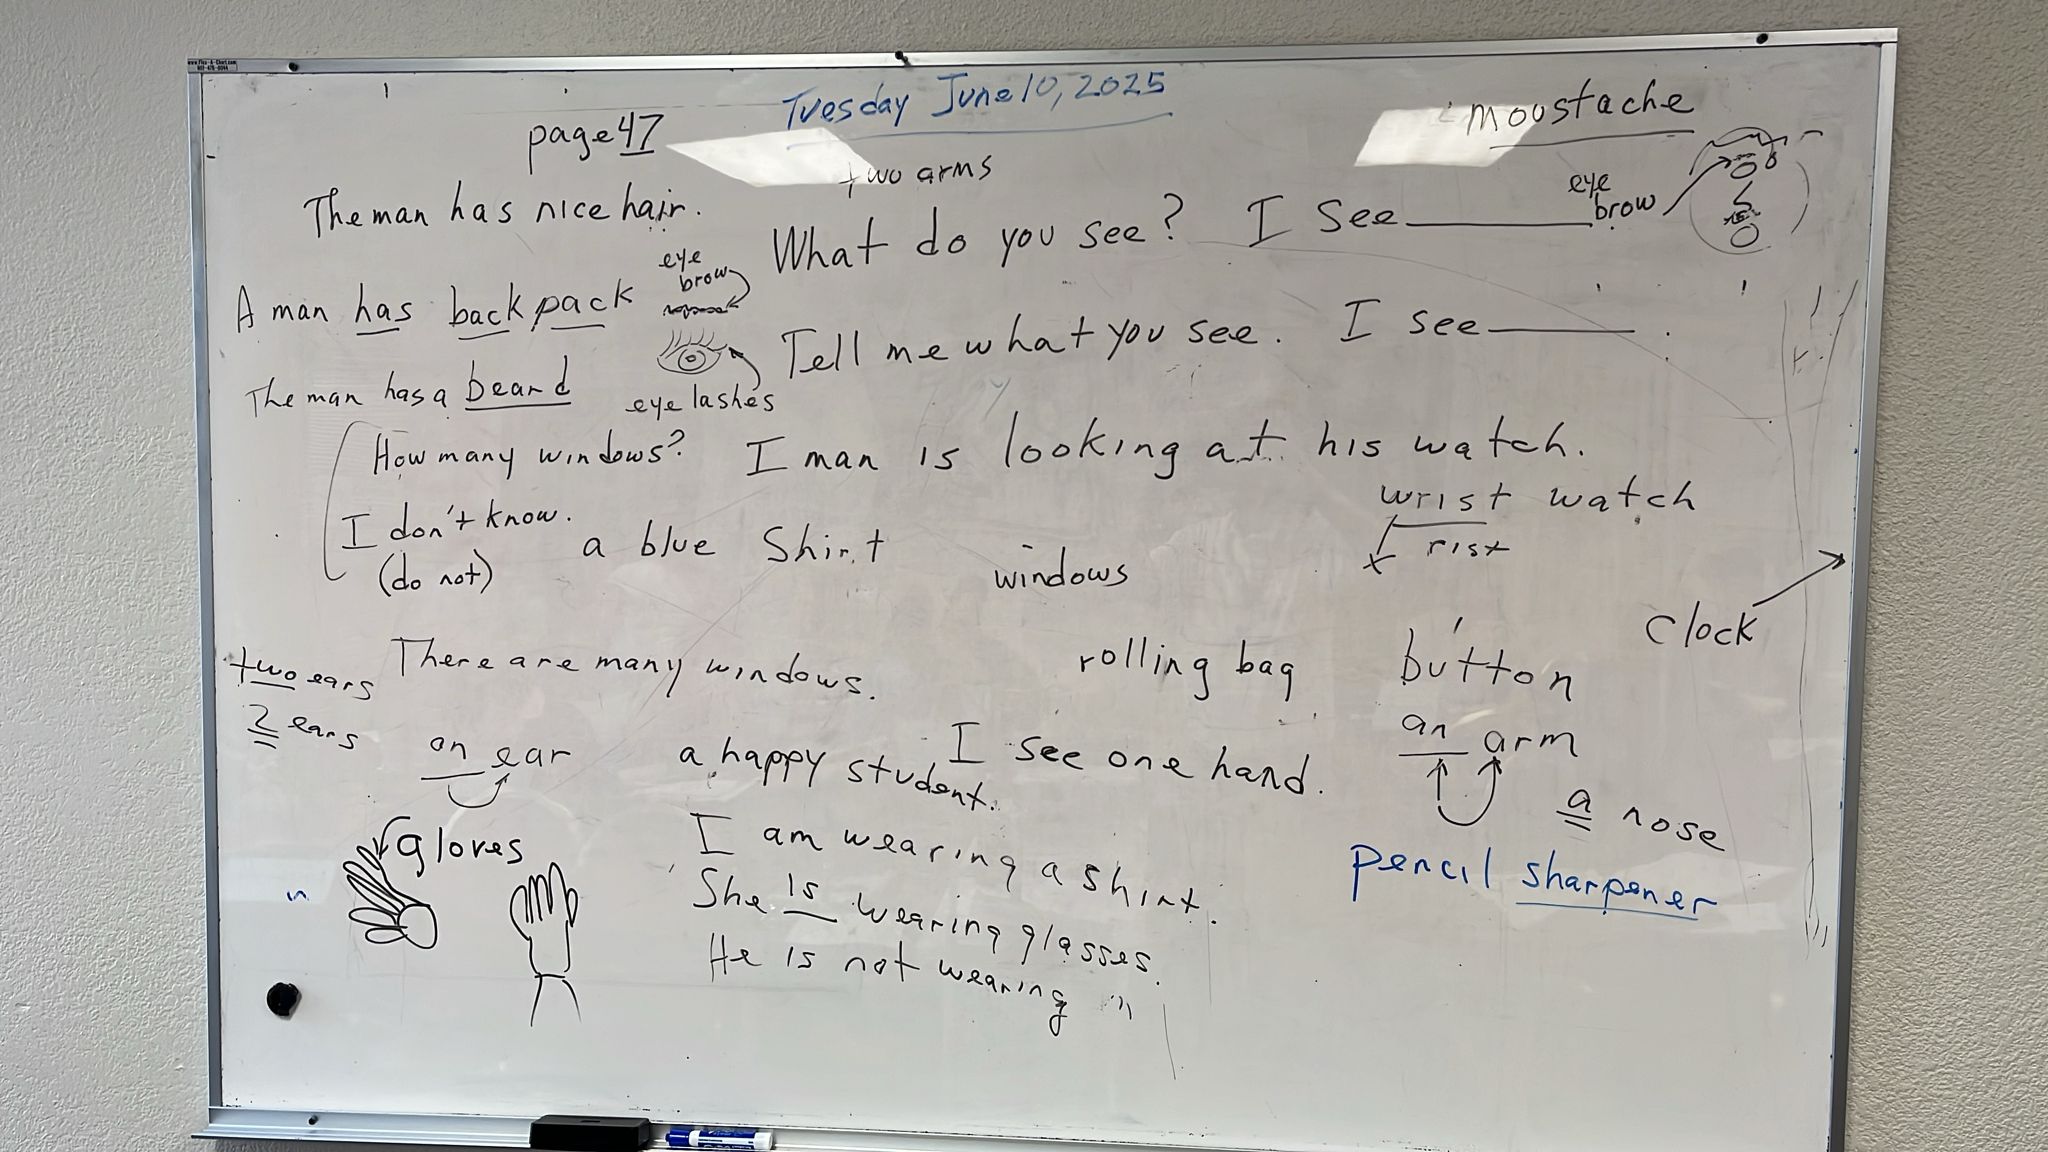 www.Flex-A-Chart.com
Tuesday June 10, 2025
page 47
moustache
two arms
The man has nice hair.
What do you see? I See
eye
brow
eye
brow
A man has back pack
Tell me what you see. I see .
The man has a beard
eye lashes
How many windows?
I man is looking at his watch.
wrist watch
rist
I don't know.
(do not)
a blue Shirt
windows
clock
two ears
There are many windows.
rolling bag
button
2 ears
an ear
a happy student.
I see one hand.
an arm
a nose
gloves
I am wearing a shirt.
She is wearing glasses.
He is not wearing "
pencil sharpener